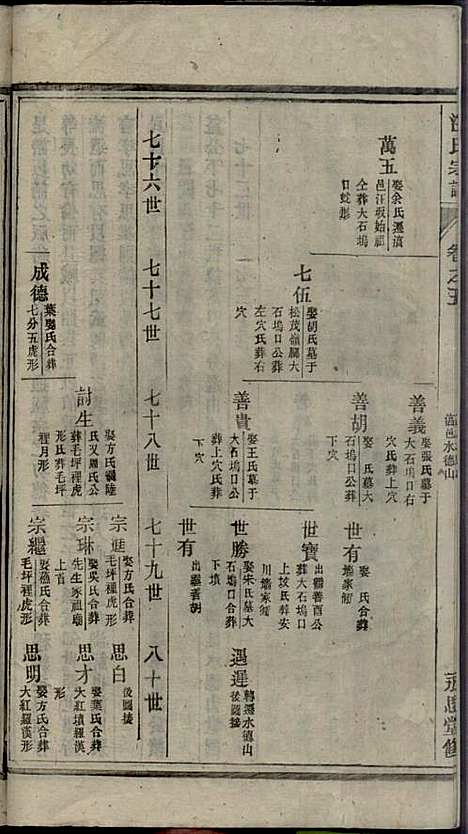 氏宗譜
卷之五
水德山
永思堂修
萬五
娶余氏遷滇
邑汪坂始祖
仝葬大石塢
口蛇形
七伍
娶胡氏墓于
松茂嶺腳大
石塢口公葬
左穴氏葬右
穴
善義
娶張氏墓于
大石塢口右
穴氏葬上穴
善胡
娶 氏墓大
石塢口公葬
下穴
善貴
娶王氏墓于
大石塢口公
葬上穴氏葬
下穴
世有
娶 氏合葬
世寶
出繼善酉公
上坡氏葬安
世勝
娶宋氏墓大
石塢口合葬
下墳
世有
出繼善胡
遇遲
轉遷水德山
後圖接
七十六世
七十七世
七十八世
七十九世
八十世
成德
葉鄭氏合葬
七分五虎形
討生
娶方氏繼陸
氏又羅氏公
葬毛坪裡虎
形氏葬毛坪
裡月形
宗誕
娶方氏合葬
毛坪裡虎形
宗琳
娶吳氏合葬
先生家祖廟
上首
宗繼
毛坪裡虎形
思白
後圖接
思才
娶葉氏合葬
大紅墳羅漢
形
思明
娶方氏合葬
大紅羅漢形